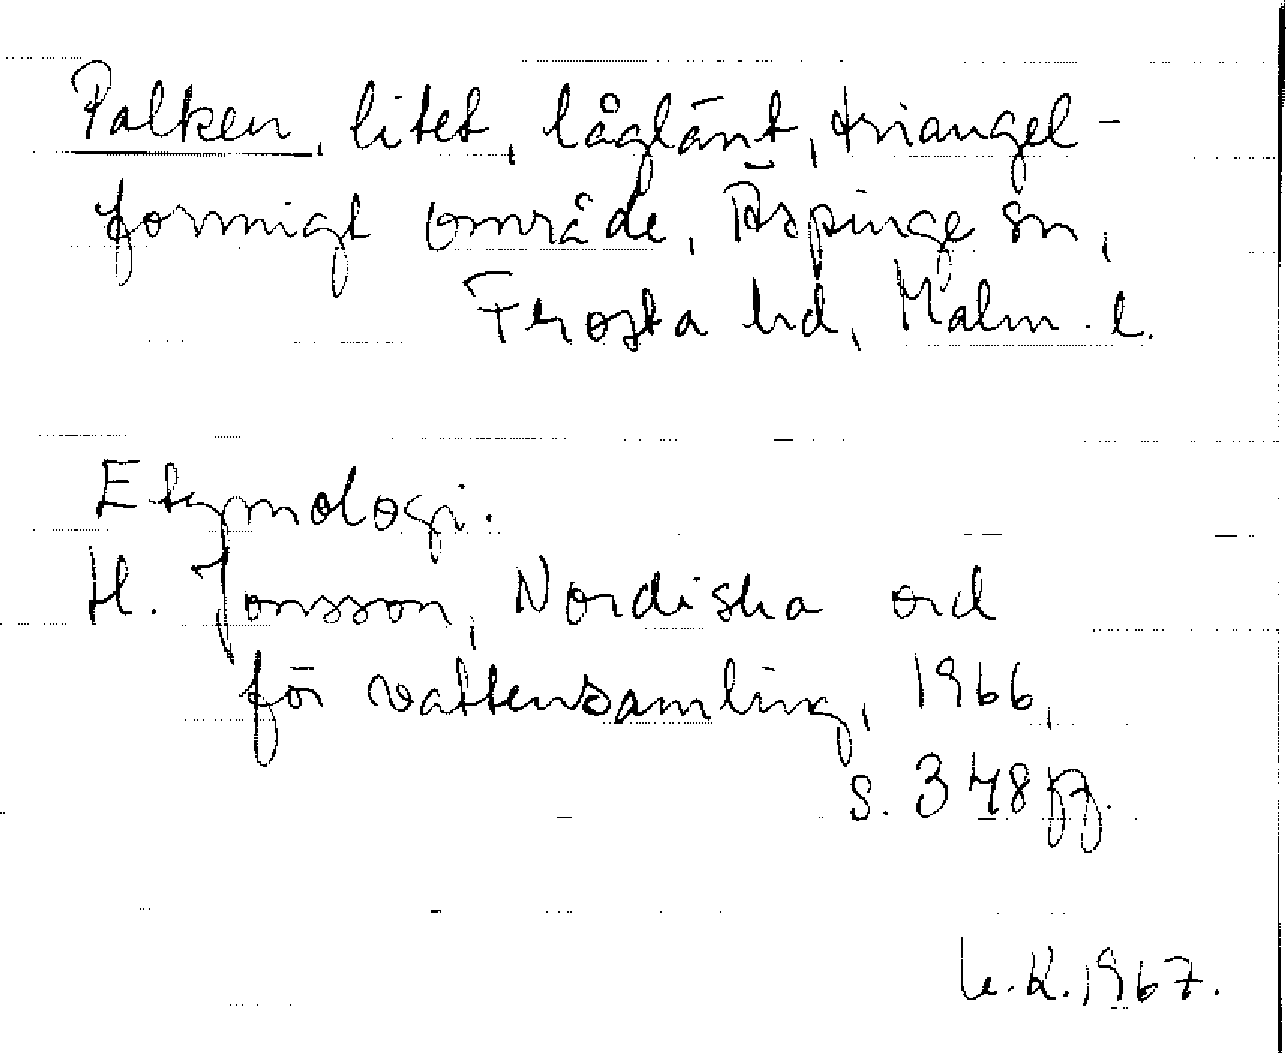 Palken, litet, låglänt, triangel-
formigt område, Äspinge sn,
Frosta hd, Malm. l.
Etymologi:
H. Jonsson, Nordiska ord
för vattensamling, 1966,
s. 348 ff.
K. 1967.